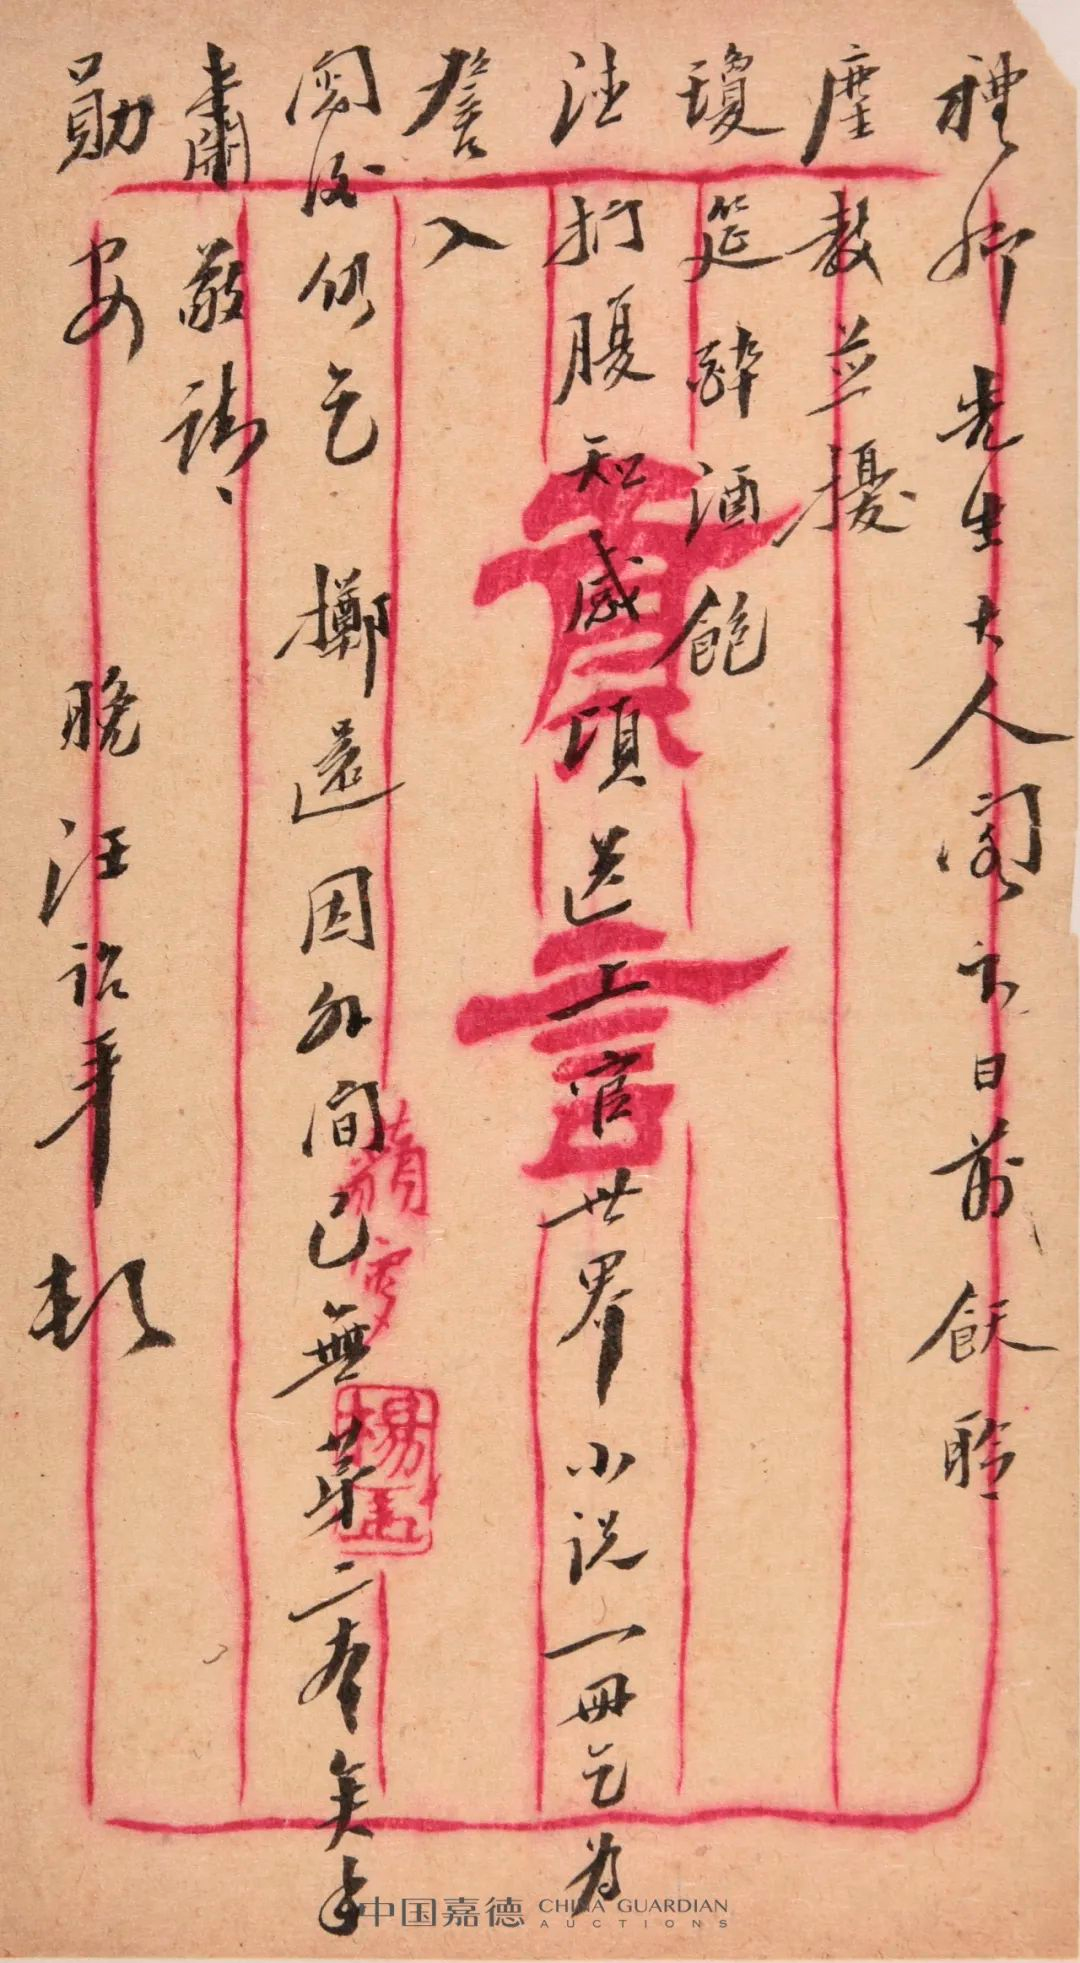 禮卿先生大人閣下日前飫聆
麈教並擾
瓊筵醉酒飽
德捫腹知感頃送上官世界小説一冊乞為
詧入
閱後仍乞擲還因外间已無第二本矣手
肅敬請
勛安 晚汪詒年頓
中国嘉德 CHINA GUARDIAN
AUCTIONS